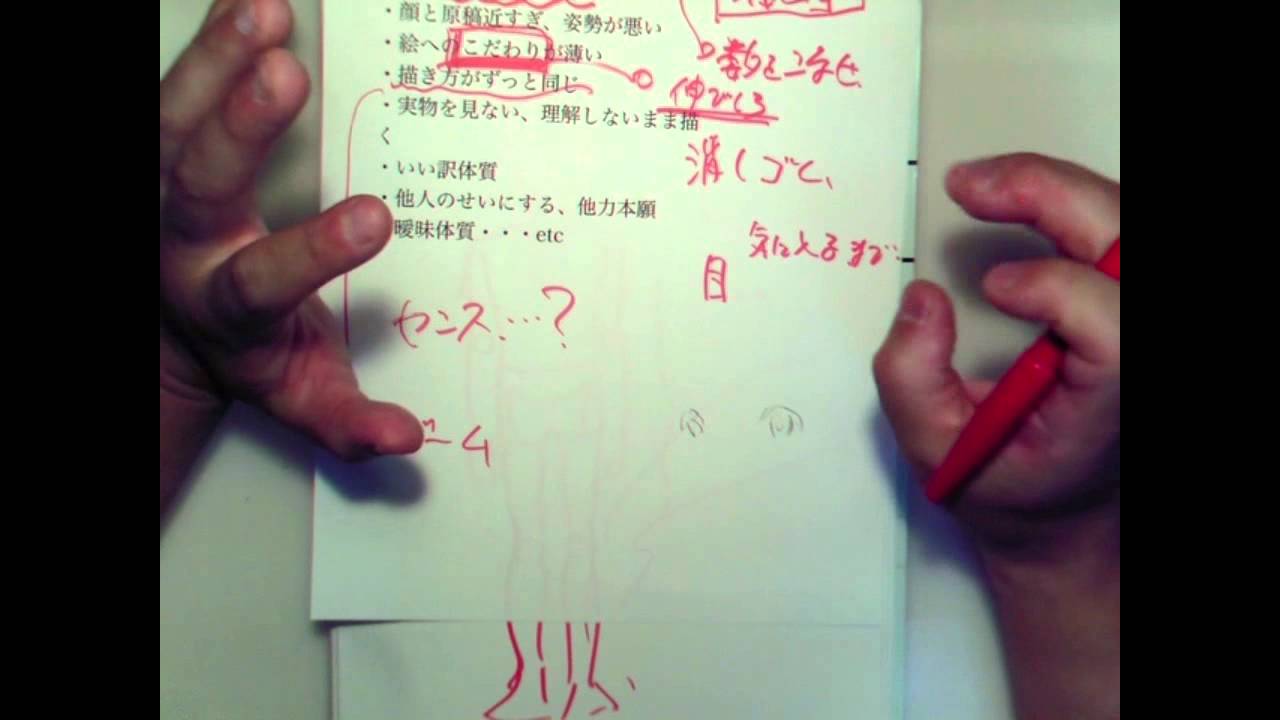 ・顔と原稿近すぎ、姿勢が悪い
・絵へのこだわりが薄い
・描き方がずっと同じ
・実物を見ない、理解しないまま描
く
・いい訳体質
・他人のせいにする、他力本願
曖昧体質・・・etc
数をこなせ
伸びしろ
消しゴム
目
センス…?